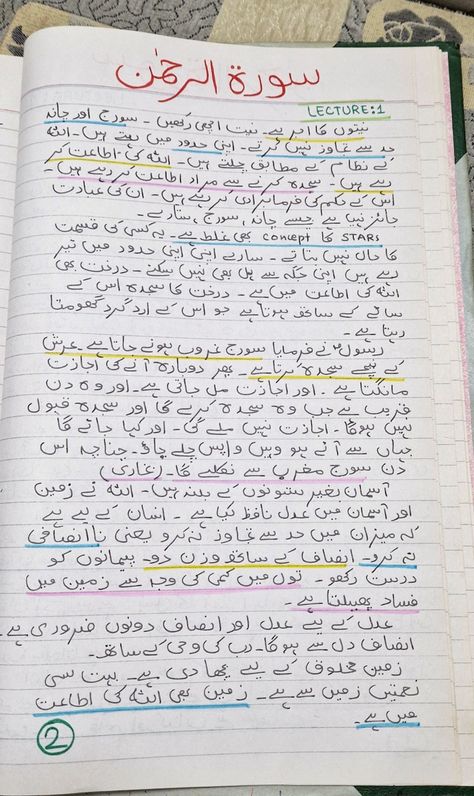 سورة الرحمٰن
LECTURE:1
نیتوں کا اجر ہے۔ نیت اچھی رکھیں۔ سورج اور چاند
حد سے تجاوز نہیں کرتے۔ اپنی حدود میں رہتے ہیں۔ اللہ
کے نظام کے مطابق چلتے ہیں۔ اللہ کی اطاعت کر
رہے ہیں۔ سجدہ کرنے سے مراد اطاعت کر رہے ہیں۔
اس کے حکم کی فرمانبرداری کر رہے ہیں۔ ان کی عبادت
جائز نہیں ہے جیسے چاند، سورج، ستارے۔
STARs کا concept بھی غلط ہے۔ یہ کسی کی قسمت
کا حال نہیں بتاتے۔ سارے اپنی اپنی حدود میں تیر
رہے ہیں اپنی جگہ سے ہل بھی نہیں سکتے۔ درخت بھی
اللہ کی اطاعت میں ہے۔ درخت کا سجدہ اس کے
سائے کے ساتھ ہوتا ہے جو اس کے ارد گرد گھومتا
رہتا ہے۔
رسولؐ نے فرمایا سورج غروب ہونے جاتا ہے۔ عرش
کے نیچے سجدہ کرتا ہے۔ پھر دوبارہ آنے کی اجازت
مانگتا ہے۔ اور اجازت مل جاتی ہے۔ اور وہ دن
قریب ہے جب وہ سجدہ کرے گا اور سجدہ قبول
نہیں ہوگا۔ اجازت نہیں ملے گی۔ اور کہا جائے گا
جہاں سے آئے ہو وہیں واپس چلے جاؤ۔ چنانچہ اس
دن سورج مغرب سے نکلے گا۔ (بخاری)
آسمان بغیر ستونوں کے بلند ہیں۔ اللہ نے زمین
اور آسمان میں عدل نافظ کیا ہے۔ انسان کے لیے ہے
کہ میزان میں حد سے تجاوز نہ کرو یعنی نا انصافی
نہ کرو۔ انصاف کے ساتھ وزن کرو۔ پیمانوں کو
درست رکھو۔ تول میں کمی کی وجہ سے زمین میں
فساد پھیلتا ہے۔
عدل کے لیے عدل اور انصاف دونوں ضروری ہے۔
انصاف دل سے ہوگا۔ رب کی وحی کے ساتھ۔
زمین مخلوق کے لیے بچھا دی ہے۔ بہت سی
نعمتیں زمین سے ہے۔ زمین بھی اللہ کی اطاعت
میں ہے۔
2